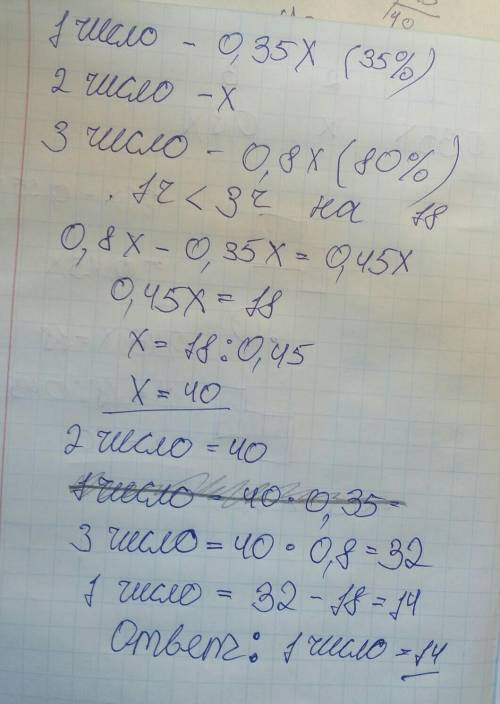 40
1 число – 0,35x (35%)
2 число – x
3 число – 0,8x (80%)
1ч < 3ч на 18
0,8x – 0,35x = 0,45x
0,45x = 18
x = 18 : 0,45
x = 40
2 число = 40
1 число = 40 · 0,35 =
3 число = 40 · 0,8 = 32
1 число = 32 – 18 = 14
Ответ: 1 число = 14